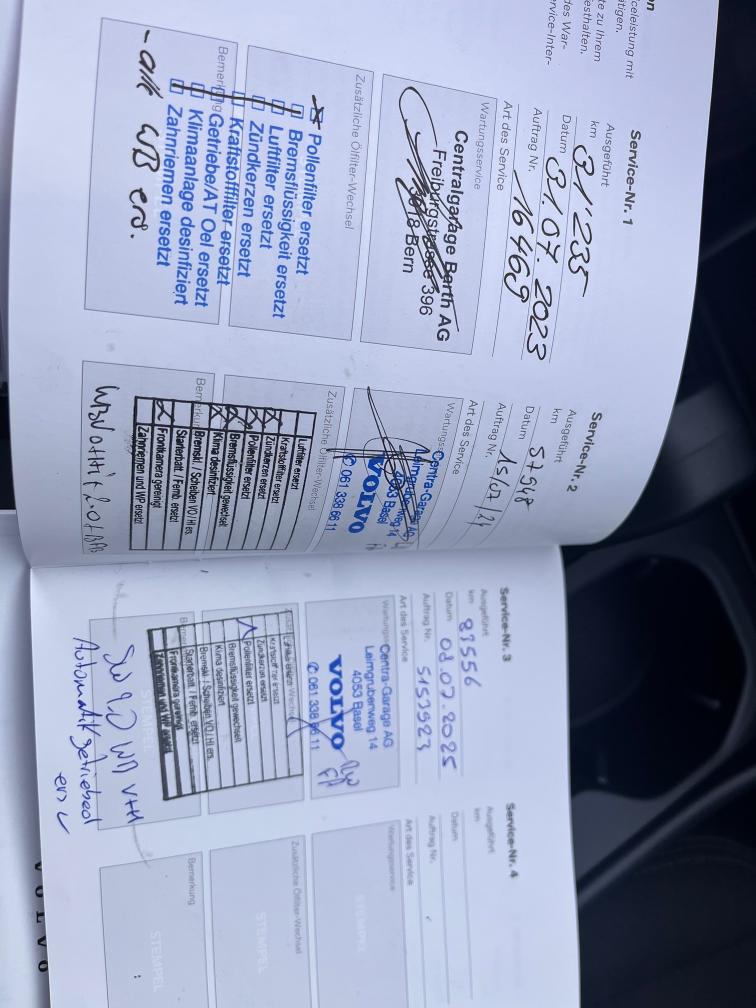 en
celeistung mit
tätigen.
te zu Ihrem
esthalten.
des War-
ervice-Inter-
Service-Nr. 1
Ausgeführt
km 31'235
Datum 31.07.2023
Auftrag Nr. 16469
Art des Service
Wartungsservice
Centralgarage Barth AG
Freiburgstrasse 396
3018 Bern
Zusätzliche Ölfilter-Wechsel
Pollenfilter ersetzt
Bremsflüssigkeit ersetzt
Luftfilter ersetzt
Zündkerzen ersetzt
Kraftstofffilter ersetzt
Bemerkung
Getriebe/AT Oel ersetzt
Klimaanlage desinfiziert
Zahnriemen ersetzt
- alle WB erd.
Service-Nr. 2
Ausgeführt
km 57548
Datum 15/07/24
Auftrag Nr.
Art des Service
Wartungs
Centra-Garage AG
Leimgrubenweg 14
4053 Basel
VOLVO
✆ 061 338 66 11
Zusätzliche Ölfilter-Wechsel
Luftfilter ersetzt
Kraftstofffilter ersetzt
Zündkerzen ersetzt
Pollenfilter ersetzt
Bremsflüssigkeit gewechselt
Klima desinfiziert
Bemerkung
Bremskl / Scheiben VO / HI es.
Starterbatt. / Fernb. ersetzt
Frontkamera gereinigt
Zahnriemen und WP ersetzt
Service-Nr. 3
Ausgeführt
km 83556
Datum 08.07.2025
Auftrag Nr. 5153523
Art des Service
Wartungs
Centra-Garage AG
Leimgrubenweg 14
4053 Basel
VOLVO
✆ 061 338 66 11
Luftfilter ersetzt
Kraftstofffilter ersetzt
Zündkerzen ersetzt
Pollenfilter ersetzt
Bremsflüssigkeit gewechselt
Klima desinfiziert
Bremskl / Scheiben VO / HI es.
Starterbatt. / Fernb. ersetzt
Frontkamera gereinigt
STEMPEL
Automatikgetriebeöl
ers
Service-Nr. 4
Ausgeführt
km
Datum
Auftrag Nr.
Art des Service
Wartungsservice
STEMPEL
Zusätzliche Ölfilter-Wechsel
STEMPEL
Bemerkung
STEMPEL
VOLVO